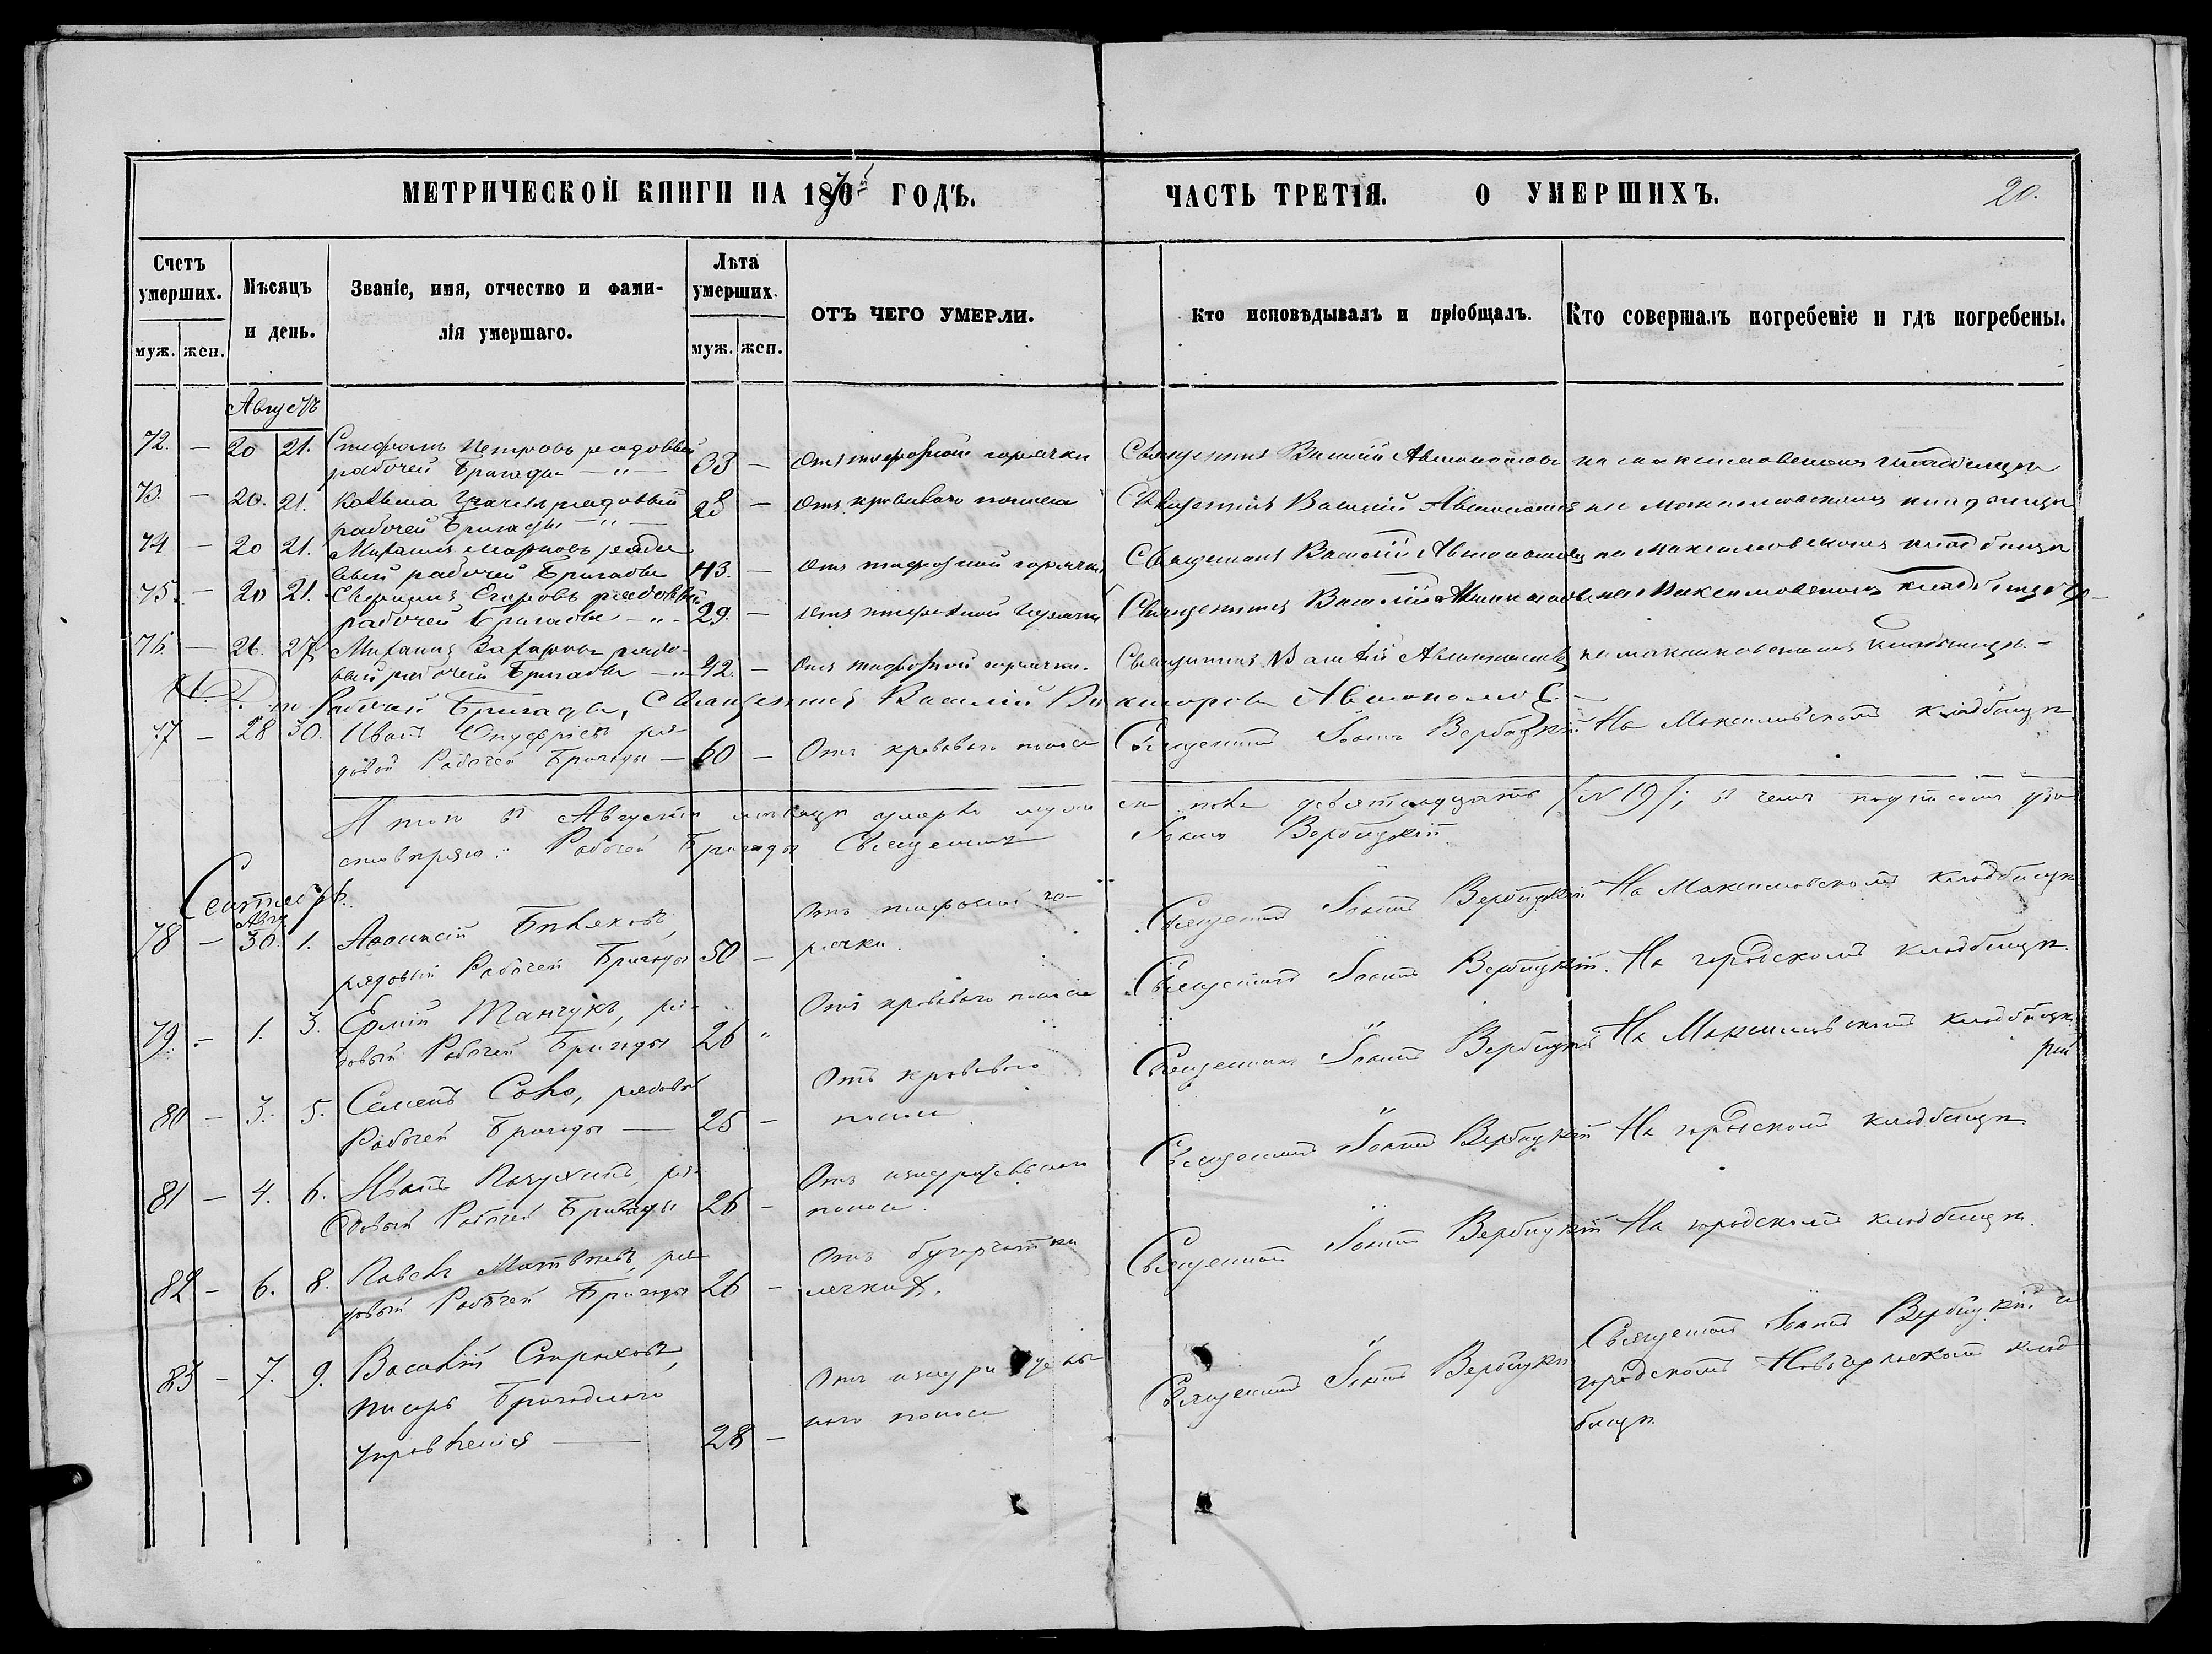 МЕТРИЧЕСКОЙ КНИГИ НА 1870й ГОДЪ.
ЧАСТЬ ТРЕТІЯ. О УМЕРШИХЪ.
20.
Счетъ умерших.
муж. жен.
Мѣсяцъ и день.
Званіе, имя, отчество и фами-
лія умершаго.
Лѣта умерших.
муж. жен.
ОТЪ ЧЕГО УМЕРЛИ.
Кто исповѣдывалъ и пріобщалъ.
Кто совершалъ погребеніе и гдѣ погребены.
Августъ
72. — 20 21. Стефанъ Петровъ рядовый
рабочей Бригады — „ — 33 — Отъ тифозной горячки Священникъ Василій Автономовъ на Максимовскомъ кладбищѣ
73. — 20. 21. Козьма рядовый
рабочей Бригады — „ — 28 — Отъ кроваваго поноса Священникъ Василій Автономовъ на Максимовскомъ кладбищѣ
74 — 20 21. Михаилъ Марковъ рядо
вый рабочей Бригады 43. — Отъ тифозной горячки Священникъ Василій Автономовъ на Максимовскомъ кладбищѣ
75. — 20 21. Егоровъ рядовый
рабочей Бригады — „ - 29. — Отъ тифозной горячки Священникъ Василій Автономовъ на Максимовскомъ кладбищѣ
76. — 26. 27. Михаилъ Захаровъ рядо-
вый рабочей Бригады — „ 42. — Отъ тифозной горячки. Священникъ Василій Автономовъ на Максимовскомъ кладбищѣ. -
Рабочей Бригады, Священникъ Василій Викторовъ Автономовъ.
77 — 28 30. Иванъ Онуфріевъ ря-
довой Рабочей Бригады — 60 — Отъ кроваваго поноса Священникъ Іоаннъ Вербицкій На Максимовскомъ кладбищѣ
Итого въ Августѣ мѣсяцѣ умерло муже ска пола девятнадцать /N 19/; въ чемъ подписомъ удо
стовѣряю: Рабочей Бригады Священникъ Іоаннъ Вербицкій
Сентябрь.
Авгу.
78 — 30. 1. Аѳанасій Бѣляковъ,
рядовый Рабочей Бригады 50 — Отъ тифозной го-
рячки. Священникъ Іоаннъ Вербицкій На Максимовскомъ кладбищѣ
79. — 1. 3. Ермій Танчукъ, ря-
довый Рабочей Бригады 26 „ Отъ кроваваго поноса Священникъ Іоаннъ Вербицкій. На городскомъ кладбищѣ.
80 — 3. 5. Семенъ Соко, рядовый
Рабочей Бригады — 25 — Отъ кроваваго
поноса Священникъ Іоаннъ Вербицкій На Максимовскомъ кладбищѣ
81 — 4. 6. Иванъ Пазухинъ, ря-
довый Рабочей Бригады 26 — Отъ изнурительнаго
поноса. Священникъ Іоаннъ Вербицкій На городскомъ кладбищѣ
82 — 6. 8. Павелъ Матвѣевъ, ря
довый Рабочей Бригады 26 — Отъ бугорчатки
легкихъ. Священникъ Іоаннъ Вербицкій На городскомъ кладбищѣ.
83 — 7. 9. Василій Стрыховъ,
писарь Бригаднаго
управленія — 28 — Отъ изнуритель
наго поноса Священникъ Іоаннъ Вербицкій Священникъ Іоаннъ Вербицкій
городскомъ Новочеркаскомъ клад
бищѣ